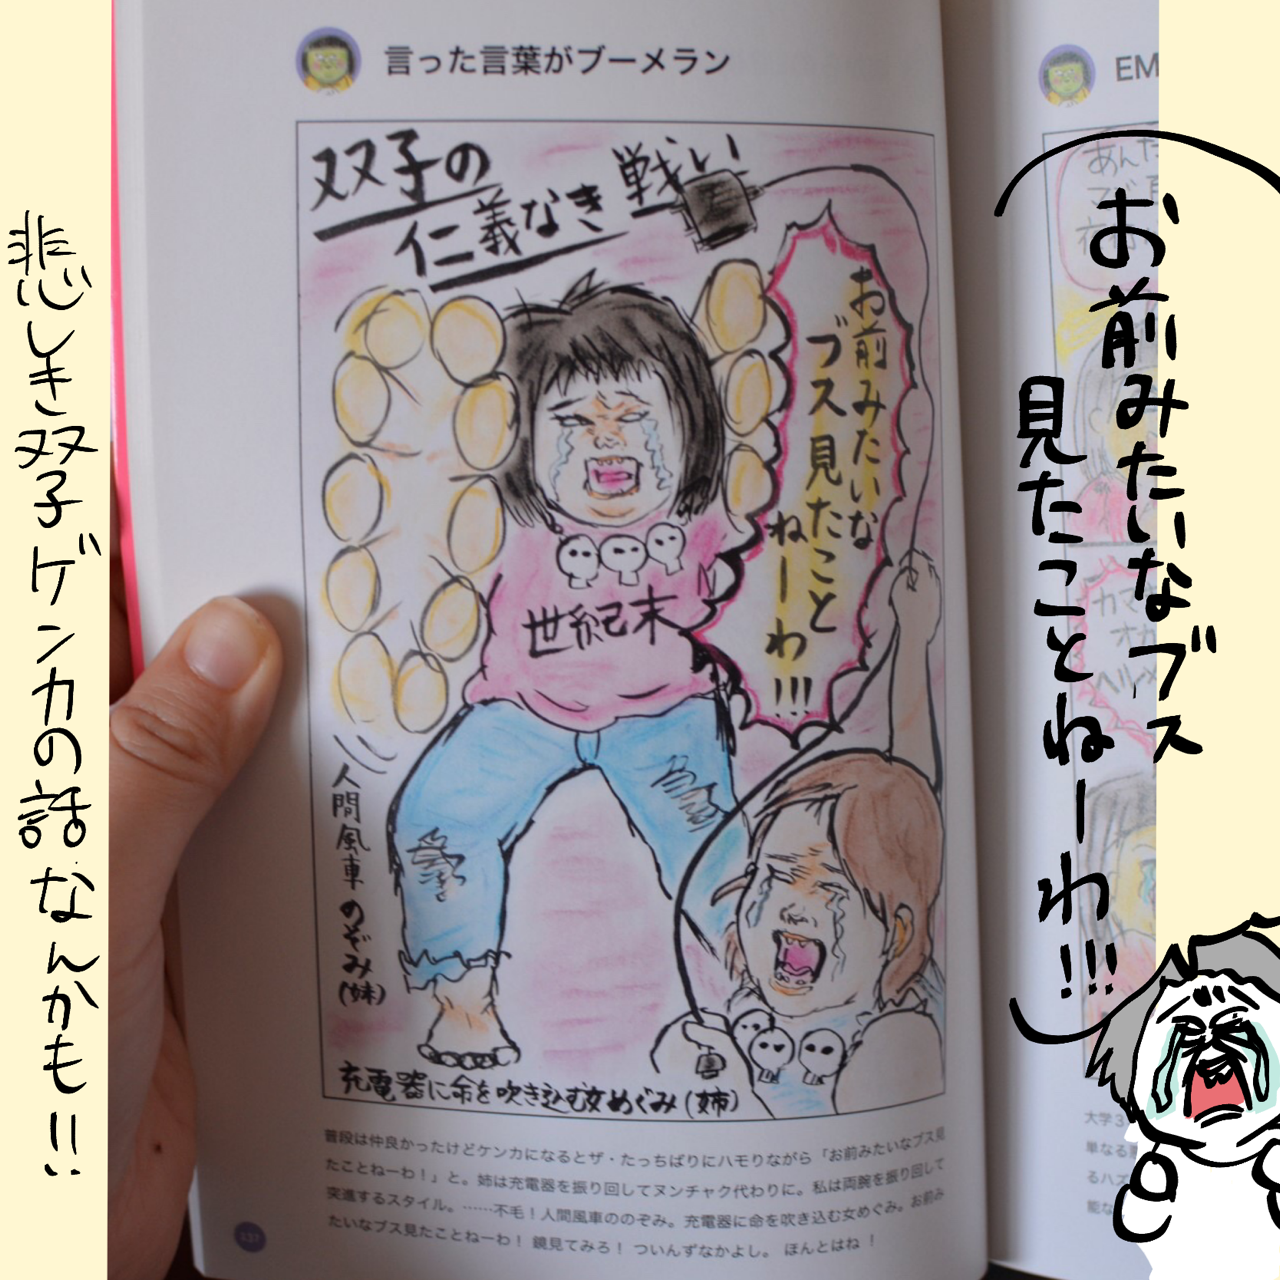 言った言葉がブーメラン
双子の
仁義なき戦い
お前みたいな
ブス見たこと
ねーわ!!!
世紀末
人間風車 のぞみ(妹)
充電器に命を吹き込む女めぐみ(姉)
普段は仲良かったけどケンカになるとザ・たっちばりにハモりながら「お前みたいなブス見
たことねーわ!」と。姉は充電器を振り回してヌンチャク代わりに。私は両腕を振り回して
突進するスタイル。……不毛!人間風車ののぞみ。充電器に命を吹き込む女めぐみ。お前み
たいなブス見たことねーわ! 鏡見てみろ! ついんずなかよし。 ほんとはね !
137
EM
あんた
カマ
オカ
ヘル
大学3
単なる
るハズ
能な
お前みたいなブス
見たことねーわ!!!
悲しき双子ゲンカの話なんかも!!